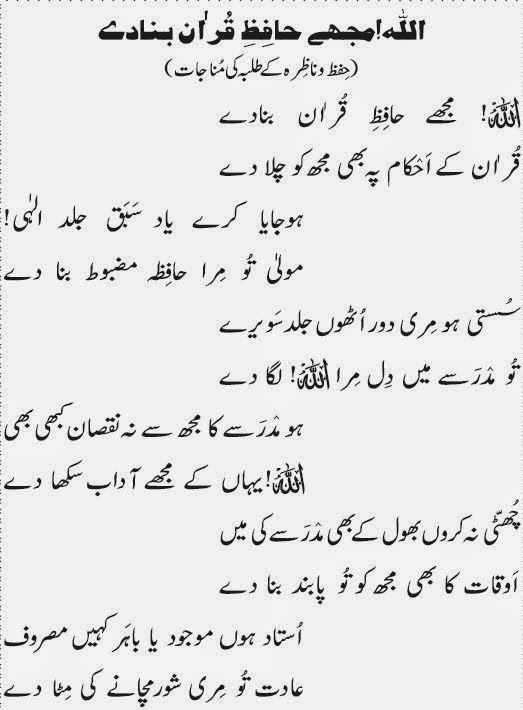 اللہ! مجھے حافِظِ قُراٰن بنادے
(حِفظ و ناظِرہ کے طلبہ کی مُناجات)
اللہ! مجھے حافِظِ قُراٰن بنادے
قُراٰن کے اَحْکام پہ بھی مجھ کو چلا دے
ہوجایا کرے یاد سَبَق جلد الٰہی!
مولیٰ تُو مِرا حافِظہ مضبوط بنا دے
سُستی ہو مِری دور اُٹھوں جلد سَویرے
تُو مدْرَسے میں دِل مِرا اللہ! لگا دے
ہو مدْرَسے کا مجھ سے نہ نقصان کبھی بھی
اللہ! یہاں کے مجھے آداب سکھا دے
چُھٹّی نہ کروں بھول کے بھی مدْرَسے کی میں
اَوقات کا بھی مجھ کو تُو پابند بنا دے
اُستاد ہوں موجود یا باہَر کہیں مصروف
عادت تُو مِری شور مچانے کی مِٹا دے